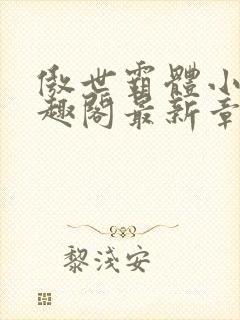 傲世霸體小
趣閣最新章
黎淺安